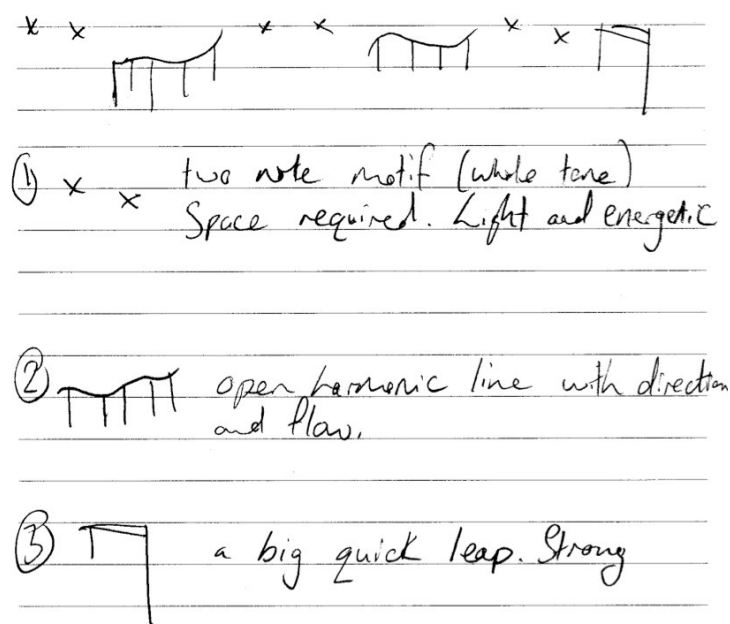 ① two note motif (whole tone)
Space required. Light and energetic
② open harmonic line with direction
and flow.
③ a big quick leap. Strong